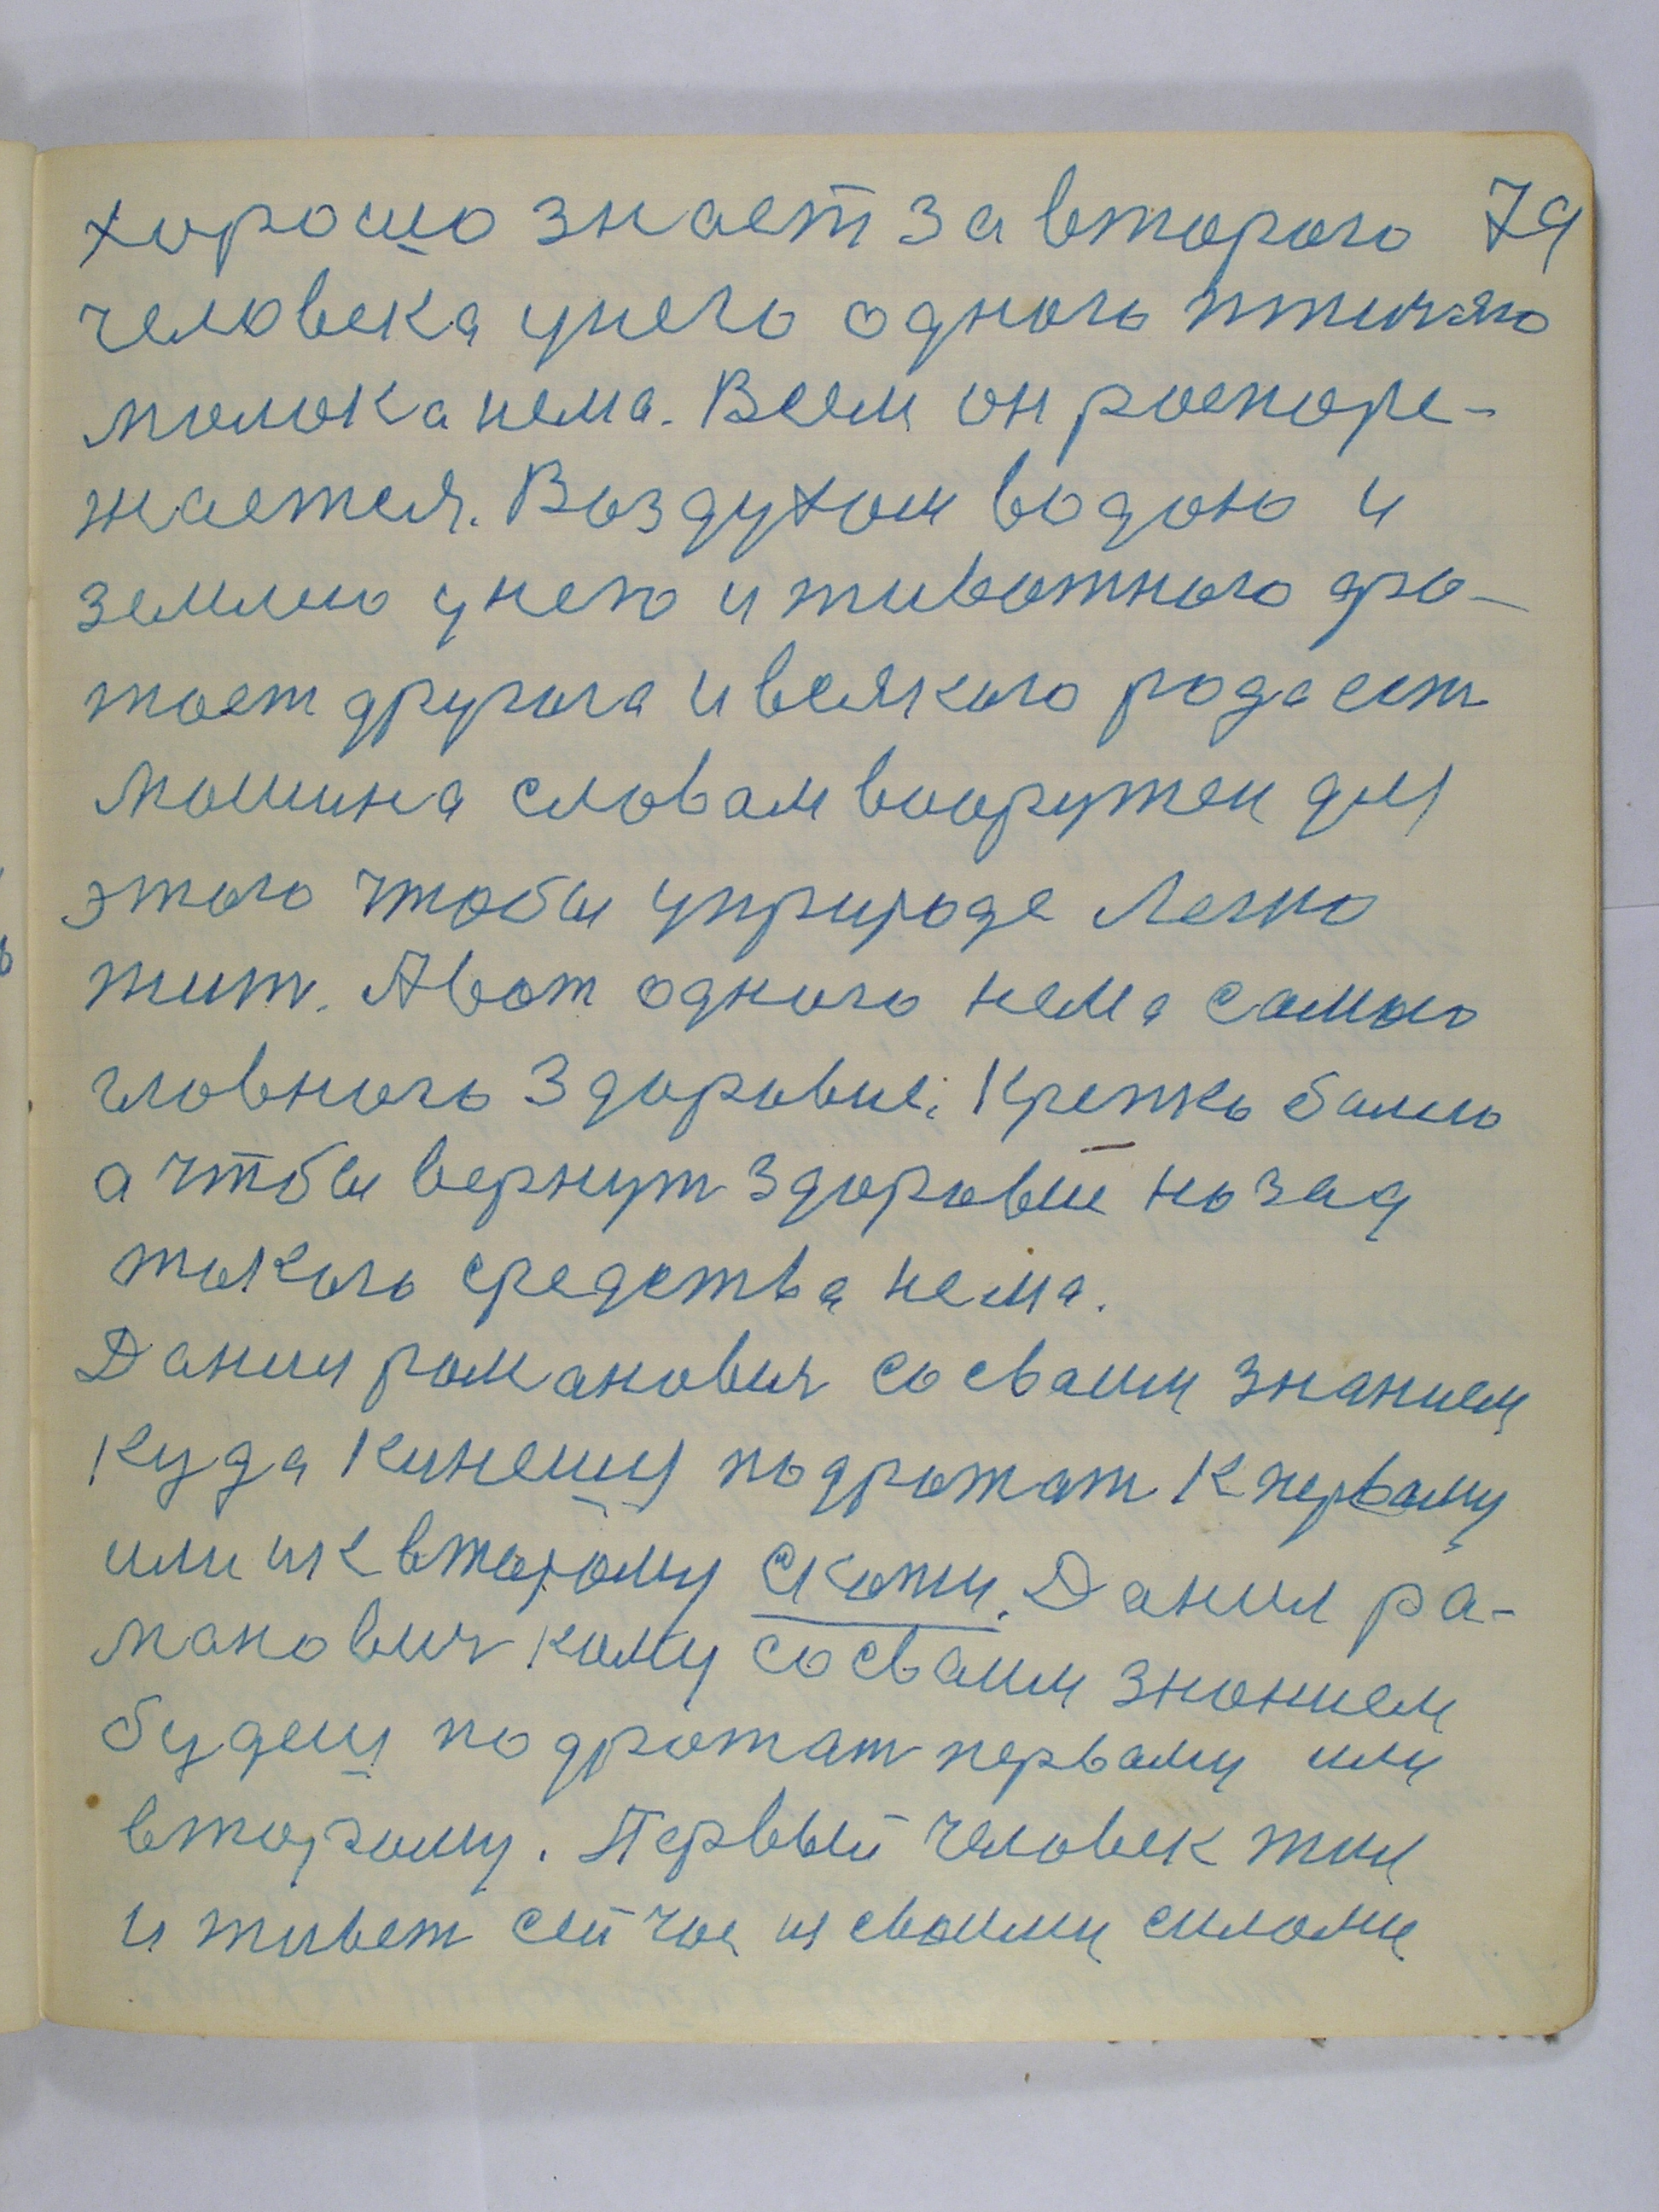 хорошо знает за второго 79
человека унего одного птичяго
молока нема. Всем он роспоре-
жается. Воздухом водою и
землею унего и животного дро-
жает другога и всякого рода ест
мошина словам вооружен для
этого чтобы уприроде легко
жит. Авот одного нема самого
гловного Здоровие. Крепко болею
а чтобы вернут здоровие нозад
токого средства нема.
Данил романович сосваим знанием
куда кинешся подрожат К первому
или ик второму скожи. Данил ра-
манович кому сосваим знонием
будеш подрожат первому или
второму. Первый человек жил
и живет сейчас и своими силоми